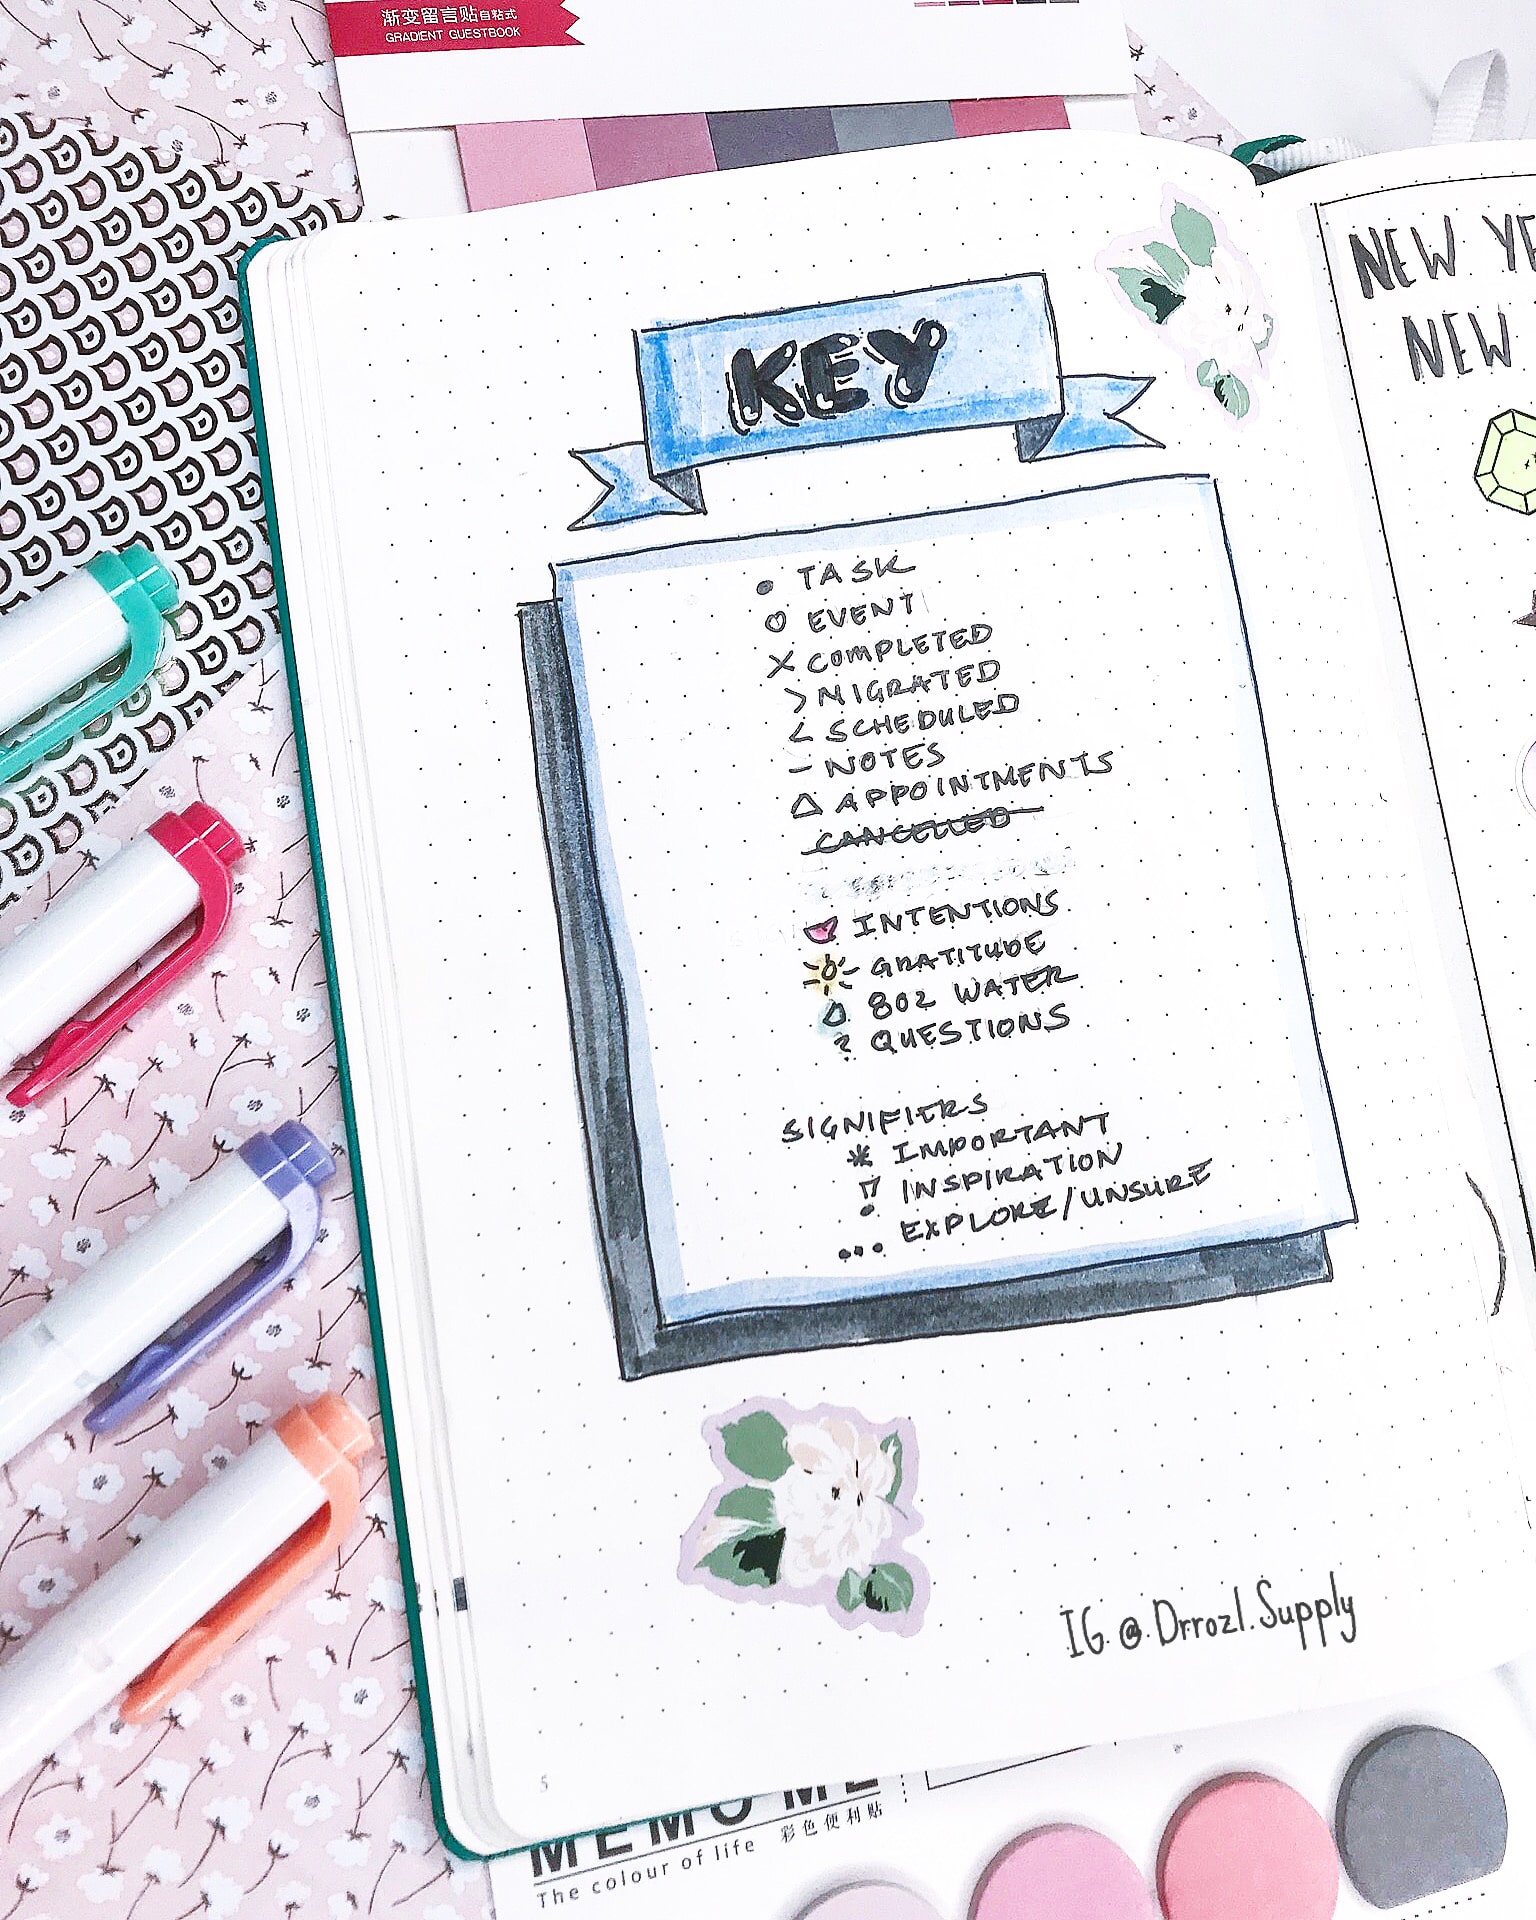 渐变留言贴自粘式
GRADIENT GUESTBOOK
KEY
• TASK
O EVENT
X COMPLETED
> MIGRATED
< SCHEDULED
– NOTES
△ APPOINTMENTS
CANCELLED
INTENTIONS
GRATITUDE
8OZ WATER
? QUESTIONS
SIGNIFIERS
* IMPORTANT
! INSPIRATION
... EXPLORE/UNSURE
IG @ Drrozl.Supply
5
NEW YE
NEW
MEMO ME
The colour of life 彩色便利贴